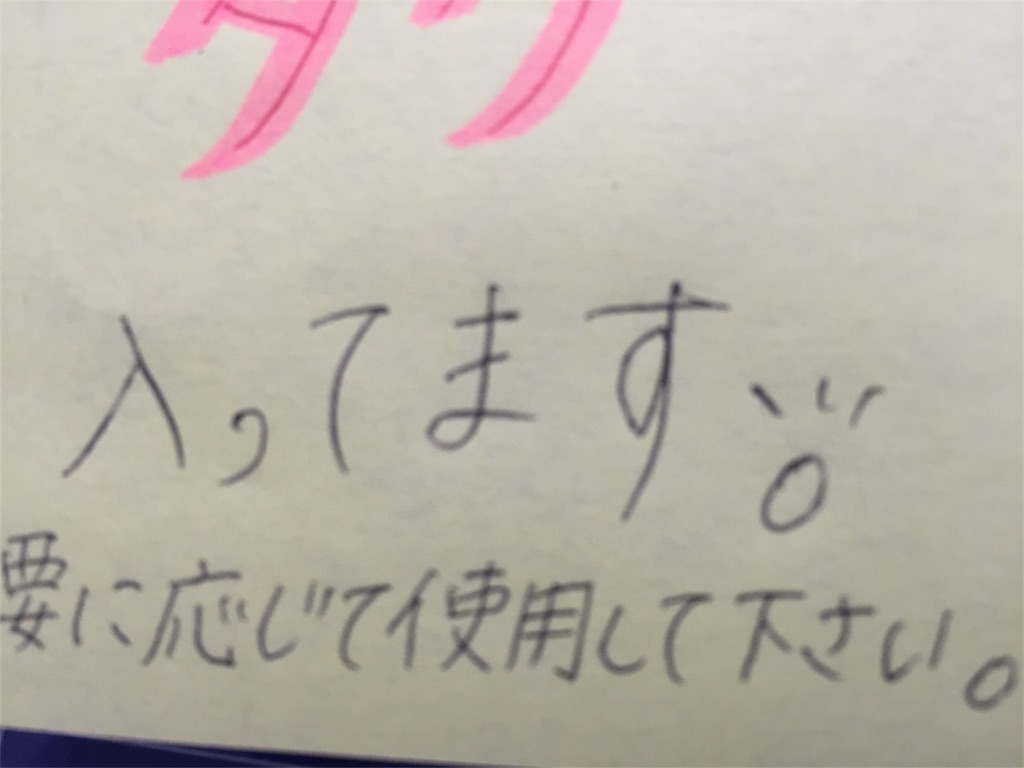 入ってます。
要に応じて使用して下さい。